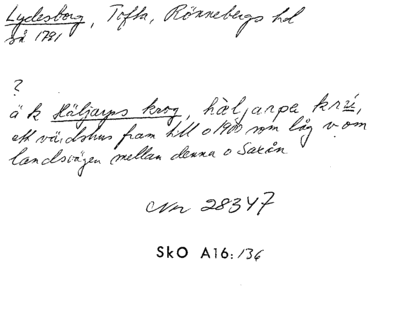 Lydesborg, Tofta, Rönnebergs hd
Så 1781
?
ä k Häljarps krog, häljarpa krú,
ett värdshus fram till o 1900 som låg v om
landsvägen mellan denna o Saxån
Nr 28347
SkO A16:136